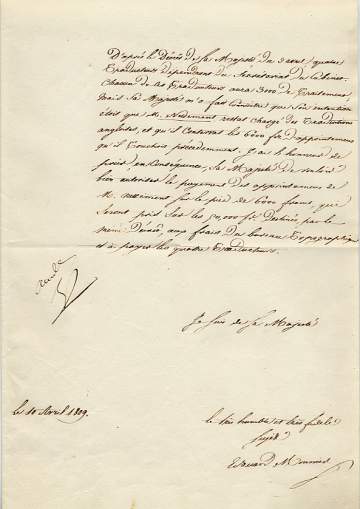 D'après le Décret de Sa Majesté du 3 avril, quatre
Traducteurs dépendent du Secrétariat du Cabinet.
Chacun de ces Traducteurs aura 3000 de Traitement
mais Sa Majesté m'a fait connaitre que son intention
était que M. restat chargé des Traductions
anglaises, et qu'il conservat les 6000 fr d'appointemens
qu'il touchait précédemment. J'ai l'honneur de
prier, en conséquence, Sa Majesté de vouloir
bien autoriser le payement des appointemens de
M. sur le pied de 6000 francs, qui
seront pris sur les 50,000 fr Destinés, par le
même Décret, aux frais du bureau Topographique
et à payer les quatre Traducteurs.
Je suis de Sa Majesté
le 10 Avril 1809.
le très humble et très fidele
Sujet
Edouard Mounier